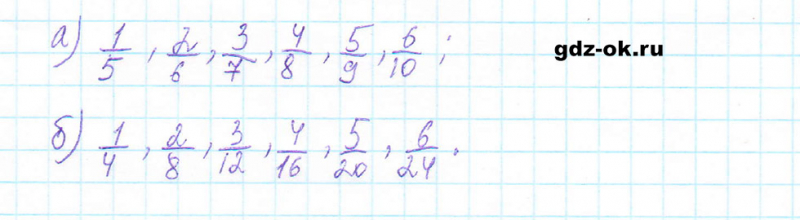 а) 1/5, 2/6, 3/7, 4/8, 5/9, 6/10;
gdz-ok.ru
б) 1/4, 2/8, 3/12, 4/16, 5/20, 6/24.